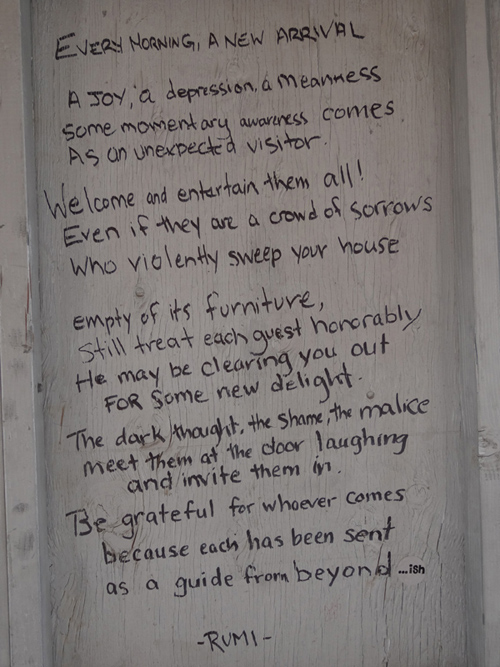 EVERY MORNING, A NEW ARRIVAL
A JOY, a depression, a meanness
some momentary awareness comes
As an unexpected visitor.
Welcome and entertain them all!
Even if they are a crowd of sorrows
Who violently sweep your house
empty of its furniture,
Still treat each guest honorably
He may be clearing you out
FOR some new delight.
The dark thought, the shame, the malice
meet them at the door laughing
and invite them in.
Be grateful for whoever comes
because each has been sent
as a guide from beyond...ish
-RUMI-